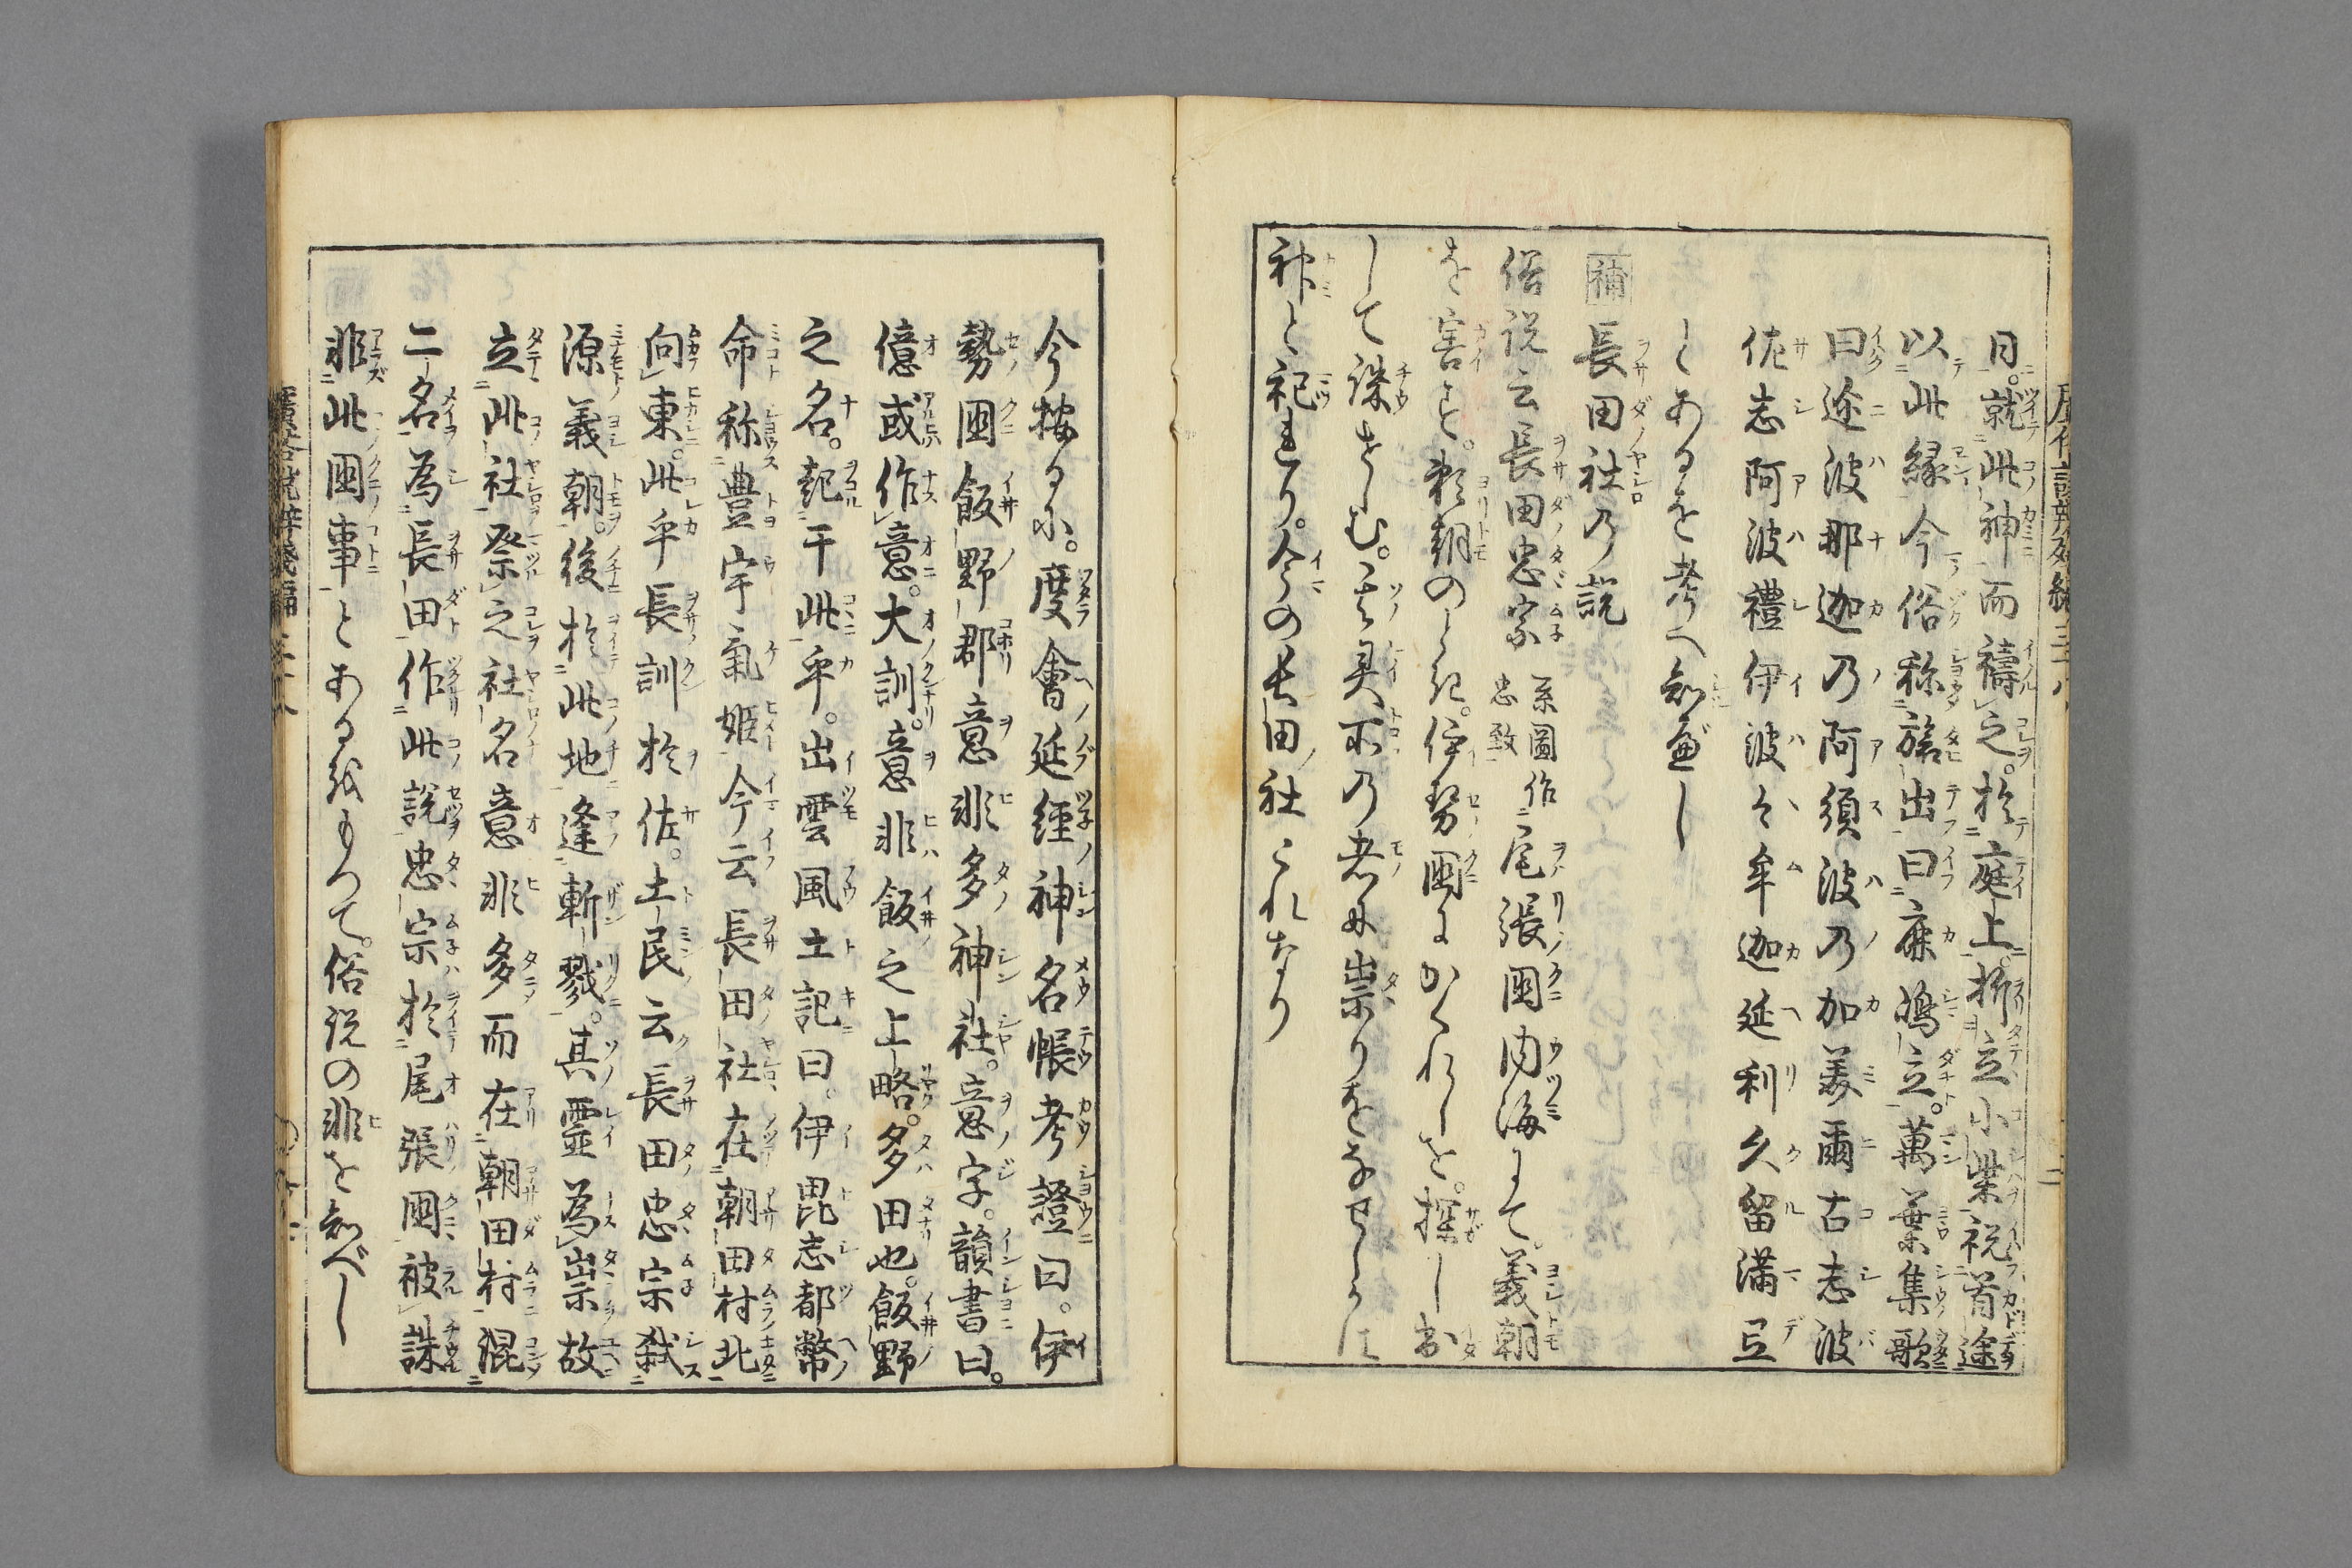 日。就此神而禱之。於庭上。折立小柴。祝首途
以此縁今俗称旅出曰鹿嶋立。萬葉集歌
曰途波那迦乃阿須波乃加美爾古志波
佐志阿波禮伊波々牟迦延利久留満弖
とあるを考へ知べし
補 長田社乃説
俗説云長田忠宗 系圖作忠致 尾張國内海にて。義朝
を害しを。頼朝のとき。伊勢國にかくれしを。探し出
して誅せしむ。其異所乃者に祟りをなせしかば
神と祀まつり。今の長田社これなり
今按るに。度會延経神名帳考證曰。伊
勢國飯野郡意非多神社。意字。韻書曰。
億或作意。大訓。意非飯之上略。多田也。飯野
之名。起于此乎。出雲風土記曰。伊毘志都幣
命称豊宇氣姫今云長田社在朝田村北
向東。此乎長訓於佐。土民云長田忠宗弑
源義朝。後於此地逢斬戮。其靈為祟故
立此社祭之社名意非多而在朝田村混
二名為長田作此説忠宗於尾張國被誅
非此國事とあるをもつて。俗説の非を知べし